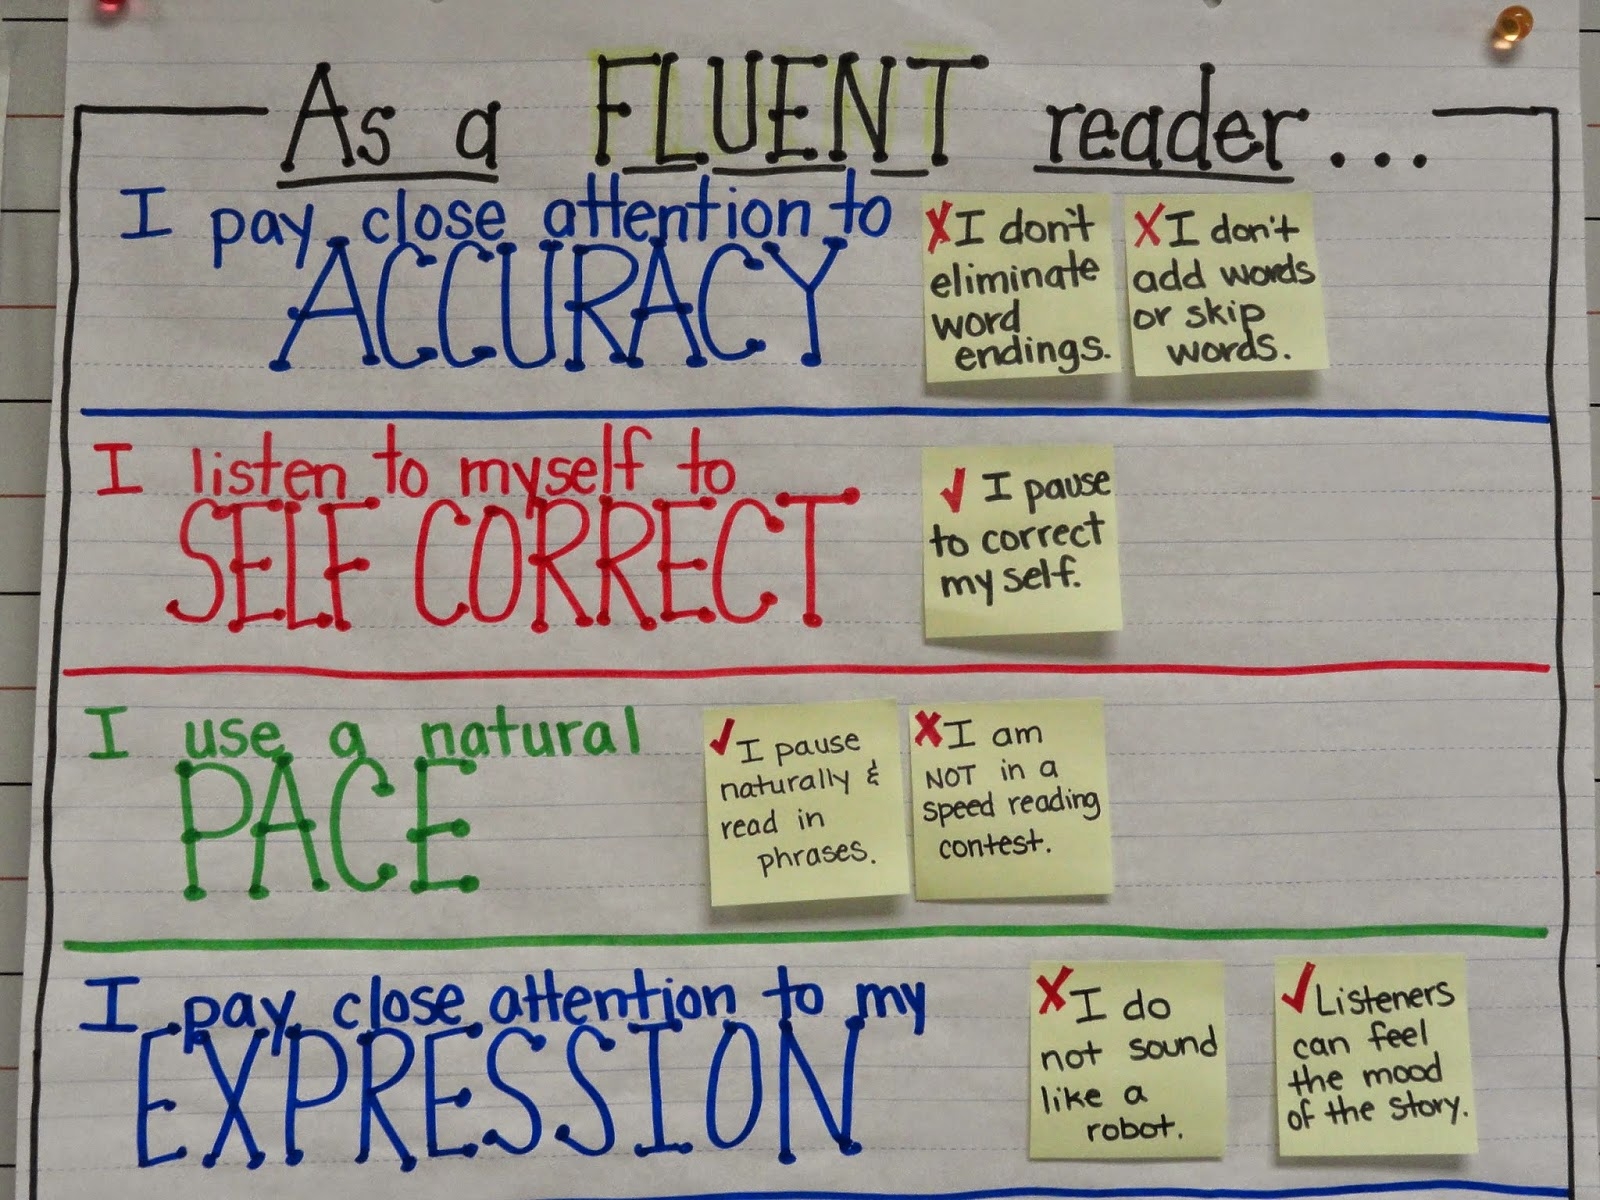 As a FLUENT reader...
I pay close attention to
ACCURACY
✗ I don't
eliminate
word
endings.
✗ I don't
add words
or skip
words.
I listen to myself to
SELF CORRECT
✓ I pause
to correct
my self.
I use a natural
PACE
✓ I pause
naturally &
read in
phrases.
✗ I am
NOT in a
speed reading
contest.
I pay close attention to my
EXPRESSION
✗ I do
not sound
like a
robot.
✓ Listeners
can feel
the mood
of the story.